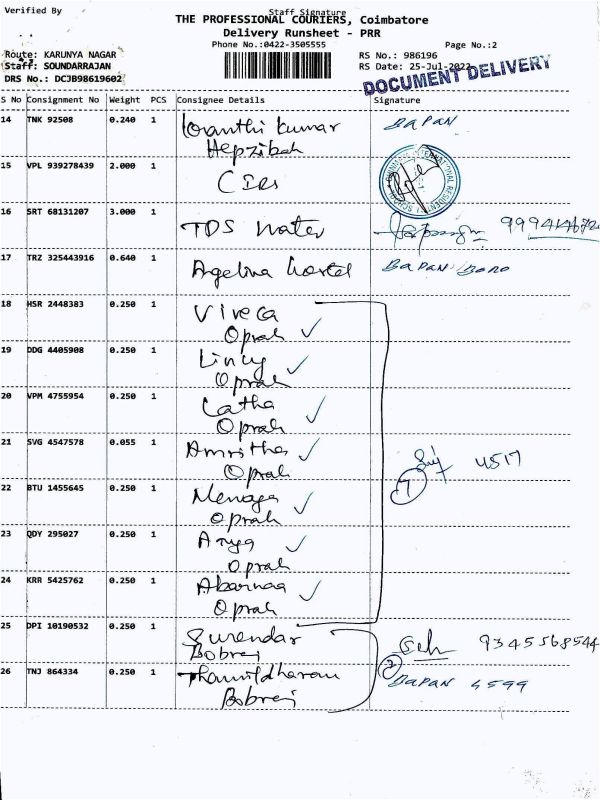 Verified By
Staff Signature
THE PROFESSIONAL COURIERS, Coimbatore
Delivery Runsheet - PRR
Phone No.:0422-3505555
Page No.:2
Route: KARUNYA NAGAR
RS No.: 986196
Staff: SOUNDARRAJAN
RS Date: 25-Jul-2022
DRS No.: DCJB98619602
DOCUMENT DELIVERY
S No Consignment No Weight PCS Consignee Details Signature
14 TNK 92508 0.240 1 kumar BAPAN
Hepzibah
15 VPL 939278439 2.000 1 CIRS
INTERNATIONAL RESIDENTIAL SCHOOL
16 SRT 68131207 3.000 1 TDS Water
17 TRZ 325443916 0.640 1 Agelina hostel BAPAN BORO
18 HSR 2448383 0.250 1 Viveca
Oprah ✓
19 DDG 4405908 0.250 1 Lincy ✓
Oprah
20 VPM 4755954 0.250 1 Latha ✓
Oprah
21 SVG 4547578 0.055 1 Amritha ✓
Oprah
22 BTU 1455645 0.250 1 Menaga ✓
Oprah
7
23 QDY 295027 0.250 1 Arya ✓
Oprah
24 KRR 5425762 0.250 1 Abarnaa ✓
Oprah
25 DPI 10190532 0.250 1 Surendar 9345568544
Bobrej
2
26 TNJ 864334 0.250 1 Thamildharan BAPAN 4599
Bobrej